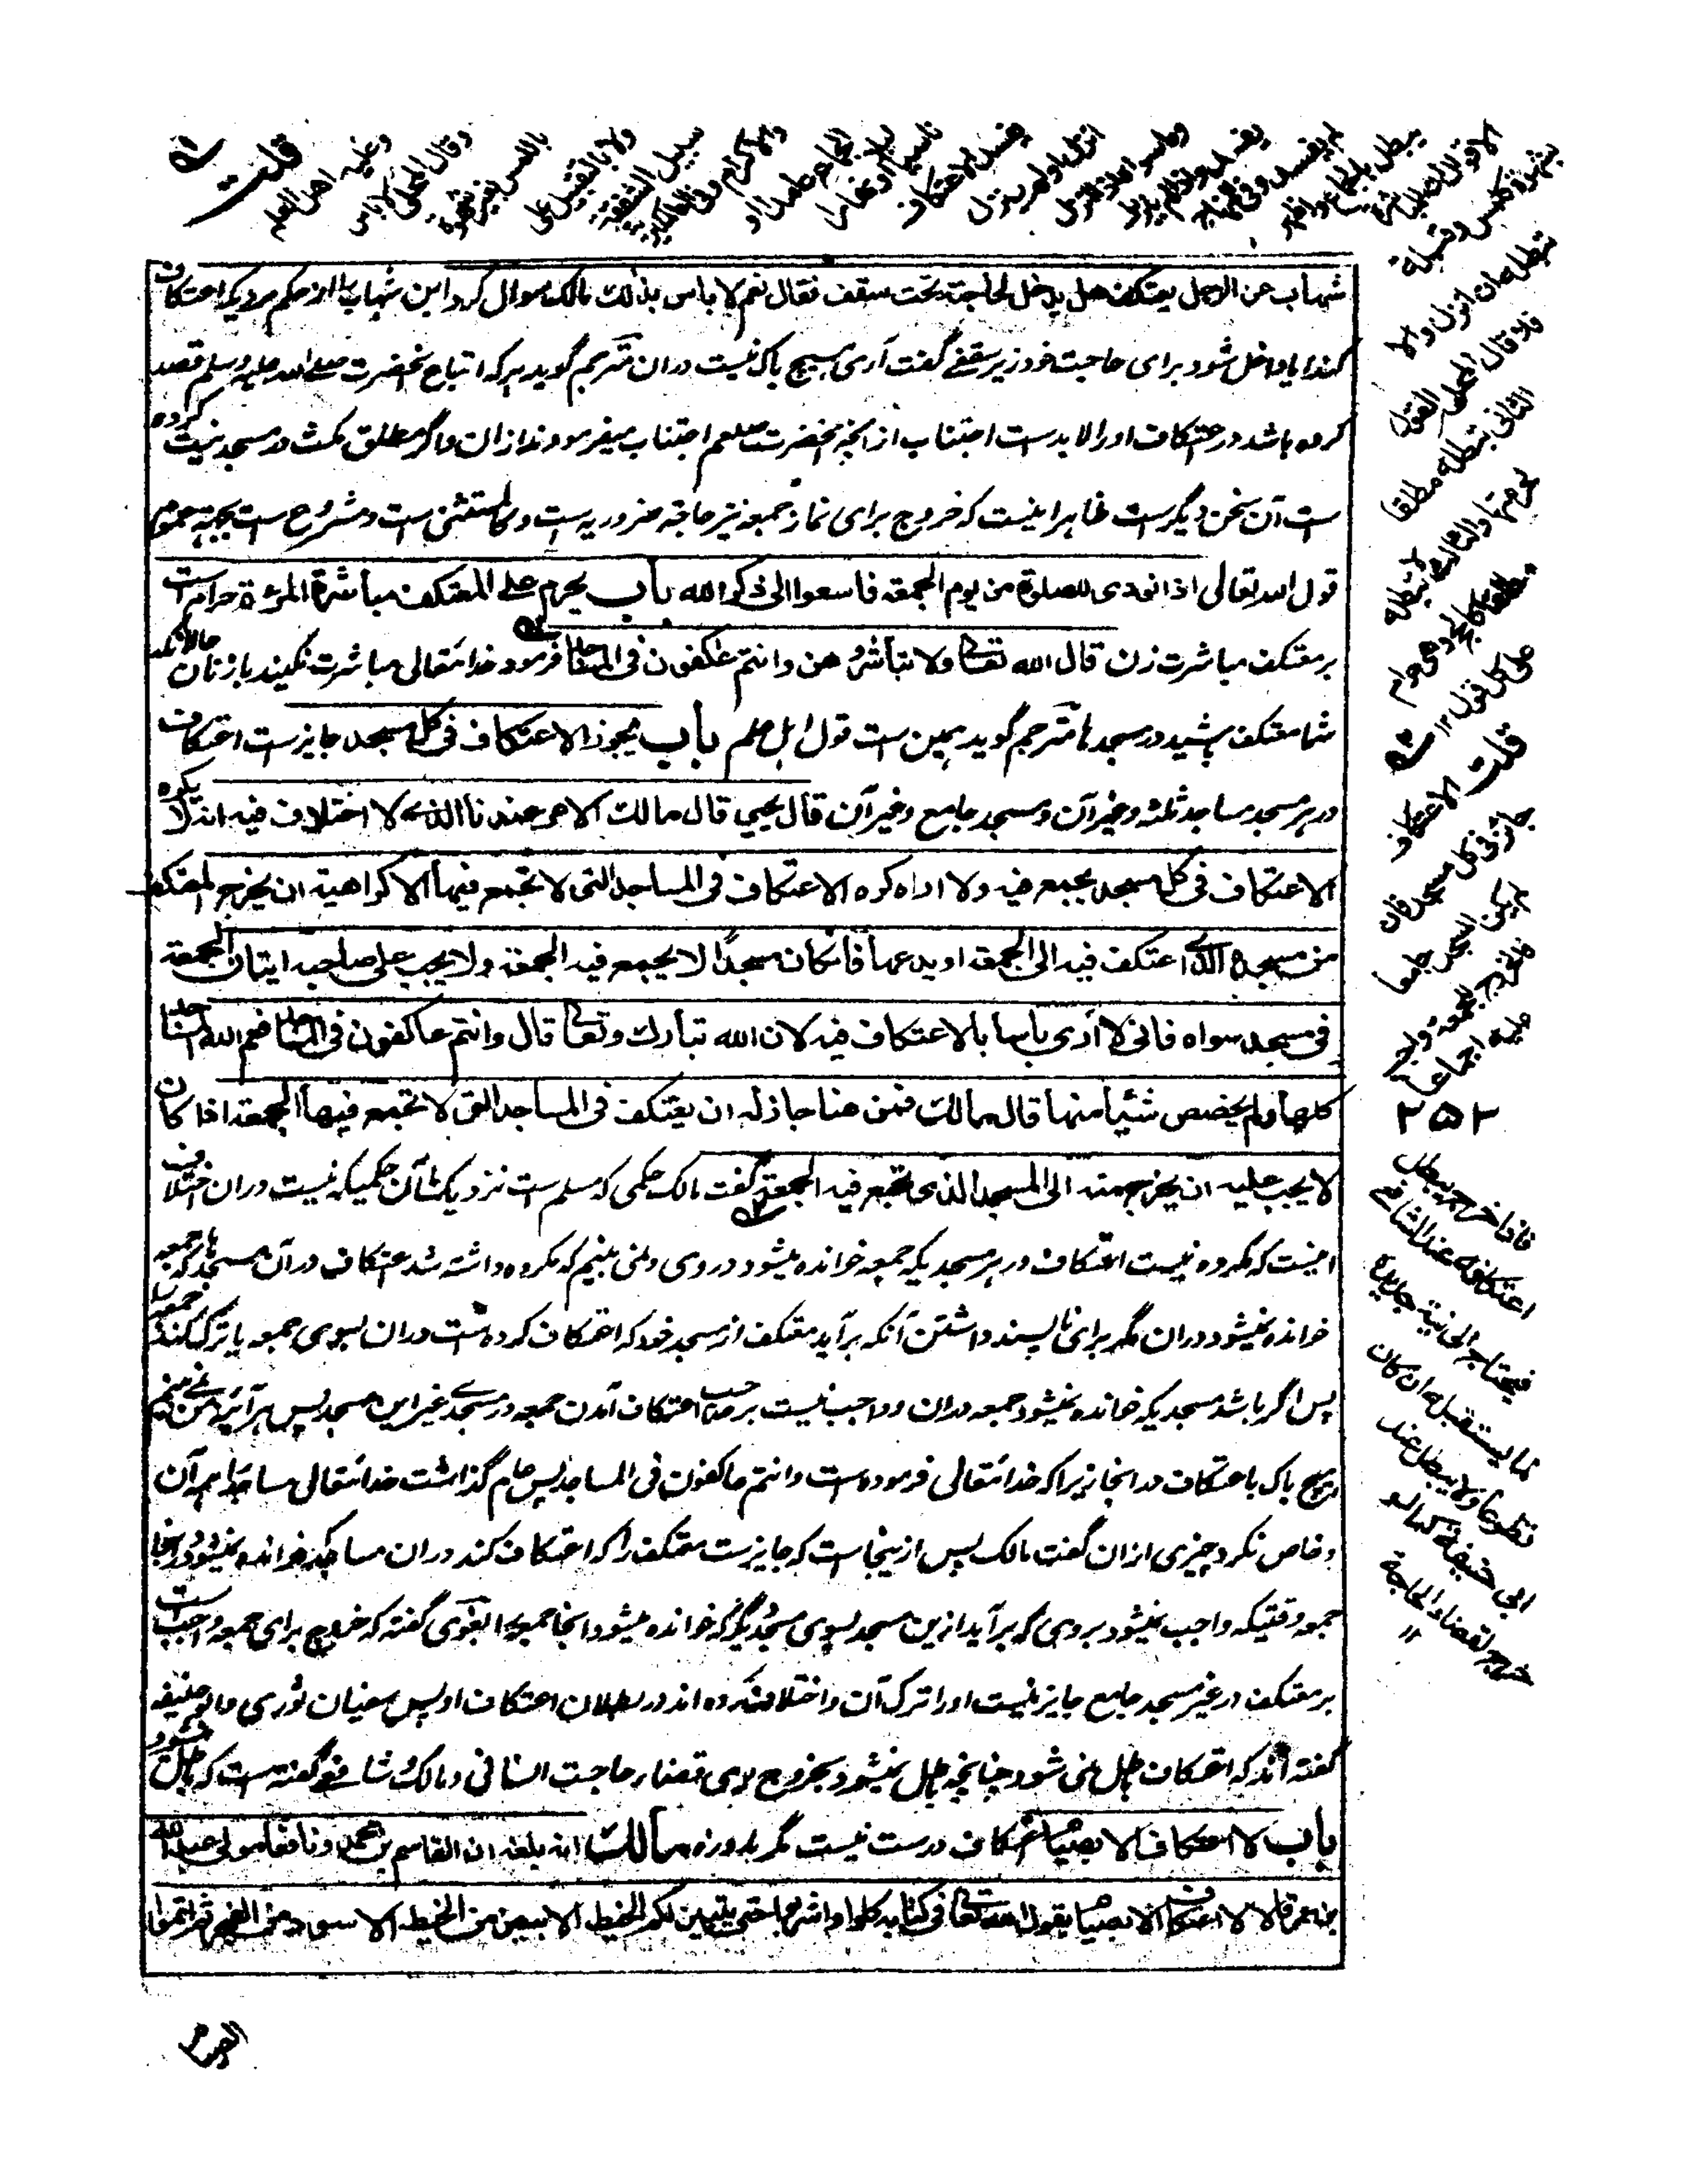 قلت
وعليه اهل العلم
وقال المحلى لا باس
باللمس بغير شهوة
ولا بالتقبيل على
سبيل الشفقة
والاكرام وفى العالمكيرية
الجماع عامدا او
ناسيا ليلا او نهارا
يفسد الاعتكاف
انزل او لم ينزل
شهاب عن الرجل يعتكف هل يدخل لحاجته تحت سقف فقال نعم لا باس بذلك مالك سوال کرد ابن شهاب را از حکم مردیکه اعتکاف
کند ایا داخل شود برای حاجت خود زیر سقفے گفت آری هیچ باک نیست دران مترجم گوید هرکه اتباع آنحضرت صلے الله علیه وسلم قصد
کرده باشد در اعتکاف اورا لابدست اجتناب از انچه آنحضرت صلعم اجتناب میفرمودند ازان و اگر مطلق مکث در مسجد نیت کرده
ست آن سخن دیگرست ظاهرا اینست که خروج برای نماز جمعه نیز حاجة ضروریه ست و مستثنی است و مشروع ست بجهة عموم
قول الله تعالى اذا نودى للصلوة من يوم الجمعة فاسعوا الى ذكر الله باب يحرم على المعتكف مباشرة المرءة حرام ست
بر معتکف مباشرت زن قال الله تعالى ولا تباشروهن وانتم عاكفون فى المساجد فرمود خدا تعالی مباشرت نکنید با زنان حالانکه
شما معتکف باشید در مسجد ها مترجم گوید همین ست قول اهل علم باب يجوز الاعتكاف فى كل مسجد جایز ست اعتکاف
در هر مسجد مساجد ثلثه و غیر آن و مسجد جامع و غیر آن قال يحيى قال مالك الامر عندنا الذى لا اختلاف فيه انه لا يكره
الاعتكاف فى كل مسجد يجمع فيه ولا اراه كره الاعتكاف فى المساجد التى لا تجمع فيها الا كراهية ان يخرج المعتكف
من مسجده الذى اعتكف فيه الى الجمعة او يدعها فان كان مسجدًا لا يجمع فيه الجمعة ولا يجب على صاحبه ايتان الجمعة
فى مسجد سواه فانى لا ارى باسا بالاعتكاف فيه لان الله تبارك وتعالى قال وانتم عاكفون فى المساجد فعم الله المساجد
كلها ولم يخصص شيئا منها قال مالك فمن هنا جاز له ان يعتكف فى المساجد التى لا تجمع فيها الجمعة اذا كان
لا يجب عليه ان يخرج منه الى المسجد الذى تجمع فيه الجمعة گفت مالک حکمی که مسلم ست نزدیک ما آن حکمیکه نیست دران اختلاف
اینست که مکروه نیست اعتکاف در هر مسجدیکه جمعه خوانده میشود در وی و نمی بینم که مکروه داشته شد اعتکاف در آن مسجدها که جمعه
خوانده نمیشود دران مگر برای ناپسند داشتن آنکه برآید معتکف از مسجد خود که اعتکاف کرده ست دران بسوی جمعه یا ترک کند جمعه را
پس اگر باشد مسجدیکه خوانده نمیشود جمعه دران و واجب نیست بر صاحب اعتکاف آمدن جمعه در مسجدے غیر این مسجد پس هر آئینه من نمے بینم
هیچ باک باعتکاف در انجا زیرا که خدا تعالی فرموده ست وانتم عاكفون فى المساجد پس عام گذاشت خدا تعالی مساجد را همه آن
و خاص نکرد چیزی ازان گفت مالک پس ازینجا ست که جایز ست معتکف را که اعتکاف کند دران مساجد که خوانده نمیشود در انجا
جمعه وقتیکه واجب نمیشود بروی که برآید ازین مسجد بسوی مسجد دیگر که خوانده میشود انجا جمعه البغوی گفته که خروج برای جمعه واجب است
بر معتکف در غیر مسجد جامع جایز نیست اورا ترک آن و اختلاف کرده اند در بطلان اعتکاف او پس سفیان ثوری و ابو حنیفه
گفته اند که اعتکاف باطل نمی شود چنانچه باطل نمیشود بخروج برای قضاء حاجت انسانی و مالک و شافعی گفته ست که باطل میشود
باب لا اعتكاف الا بصيام اعتکاف درست نیست مگر بروزه مالك انه بلغه ان القاسم بن محمد ونافعا مولى عبد الله
بن عمر قالا لا اعتكاف الا بصيام يقول الله تعالى فى كتابه كلوا واشربوا حتى يتبين لكم الخيط الابيض من الخيط الاسود من الفجر ثم اتموا
الثانى تبطله مطلقا
على كل قول ۱۲
قلت الاعتكاف
جائز فى كل مسجد فان
لم يكن المسجد جامعا
فالخروج للجمعة واجب
عليه اجماعا
۲۵۲
فاذا خرج يبطل
اعتكافه عند الشافعى
فيحتاج الى نية جديدة
لما يستقبل ان كان
تطوعا ولا يبطل عند
ابى حنيفة كما لو
خرج لقضاء الحاجة
۱۲
الصيام